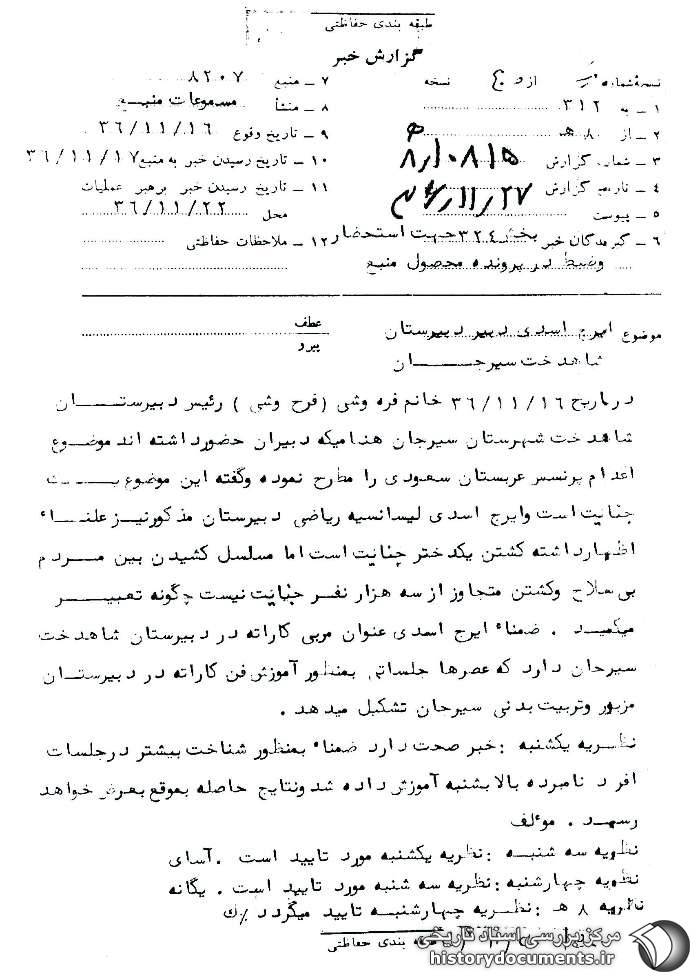 طبقه بندی حفاظتی
گزارش خبر
نسخهٔ شماره از نسخه
۱ ـ به ۳۱۲
۲ ـ از ۸ هـ
۳ ـ شماره گزارش
۴ ـ تاریخ گزارش
۵ ـ پیوست
۶ ـ گیرندگان خبر بخش ۳۲۴ جهت استحضار
وضبط در پرونده محصول منبع
۷ ـ منبع ۸۲۰۷
۸ ـ منشأ مسموعات منبع
۹ ـ تاریخ وقوع ۳۶/۱۱/۱۶
۱۰ ـ تاریخ رسیدن خبر به منبع ۳۶/۱۱/۱۷
۱۱ ـ تاریخ رسیدن خبر برهبر عملیات
محل ۳۶/۱۱/۲۲
۱۲ ـ ملاحظات حفاظتی
موضوع ایرج اسدی دبیر دبیرستان
شاهدخت سیرجـــان
عطف
پیرو
درتاریخ ۳۶/۱۱/۱۶ خانم فره وشی (فرح وشی) رئیس دبیرستـــان
شاهدخت شهرستان سیرجان هنگامیکه دبیران حضورداشته اند موضوع
اعدام پرنسس عربستان سعودی را مطرح نموده وگفته این موضوع
جنایت است وایرج اسدی لیسانسیه ریاضی دبیرستان مذکورنیز علنـــاً
اظهارداشته کشتن یکدختر جنایت است اما مسلسل کشیدن بین مـردم
بی سلاح وکشتن متجاوز از سه هزار نفر جنایت نیست چگونه تعبیـــر
میکنید . ضمناً ایرج اسدی عنوان مربی کاراته در دبیرستان شاهدخت
سیرجان دارد که عصرها جلساتی بمنظور آموزش فن کاراته در دبیرستـــان
مزبور وتربیت بدنی سیرجان تشکیل میدهد .
نظریه یکشنبه : خبر صحت دارد ضمناً بمنظور شناخت بیشتر درجلسات
افراد نامبرده بالا بشنبه آموزش داده شد ونتایج حاصله بموقع بعرض خواهد
رسید . موءلف
نظریه سه شنبه : نظریه یکشنبه مورد تایید است . آسای
نظریه چهارشنبه : نظریه سه شنبه مورد تایید است . یگانه
نظریه ۸ هـ : نظریه چهارشنبه تایید میگردد
طبقه بندی حفاظتی
مرکز بررسی اسناد تاریخی
historydocuments.ir